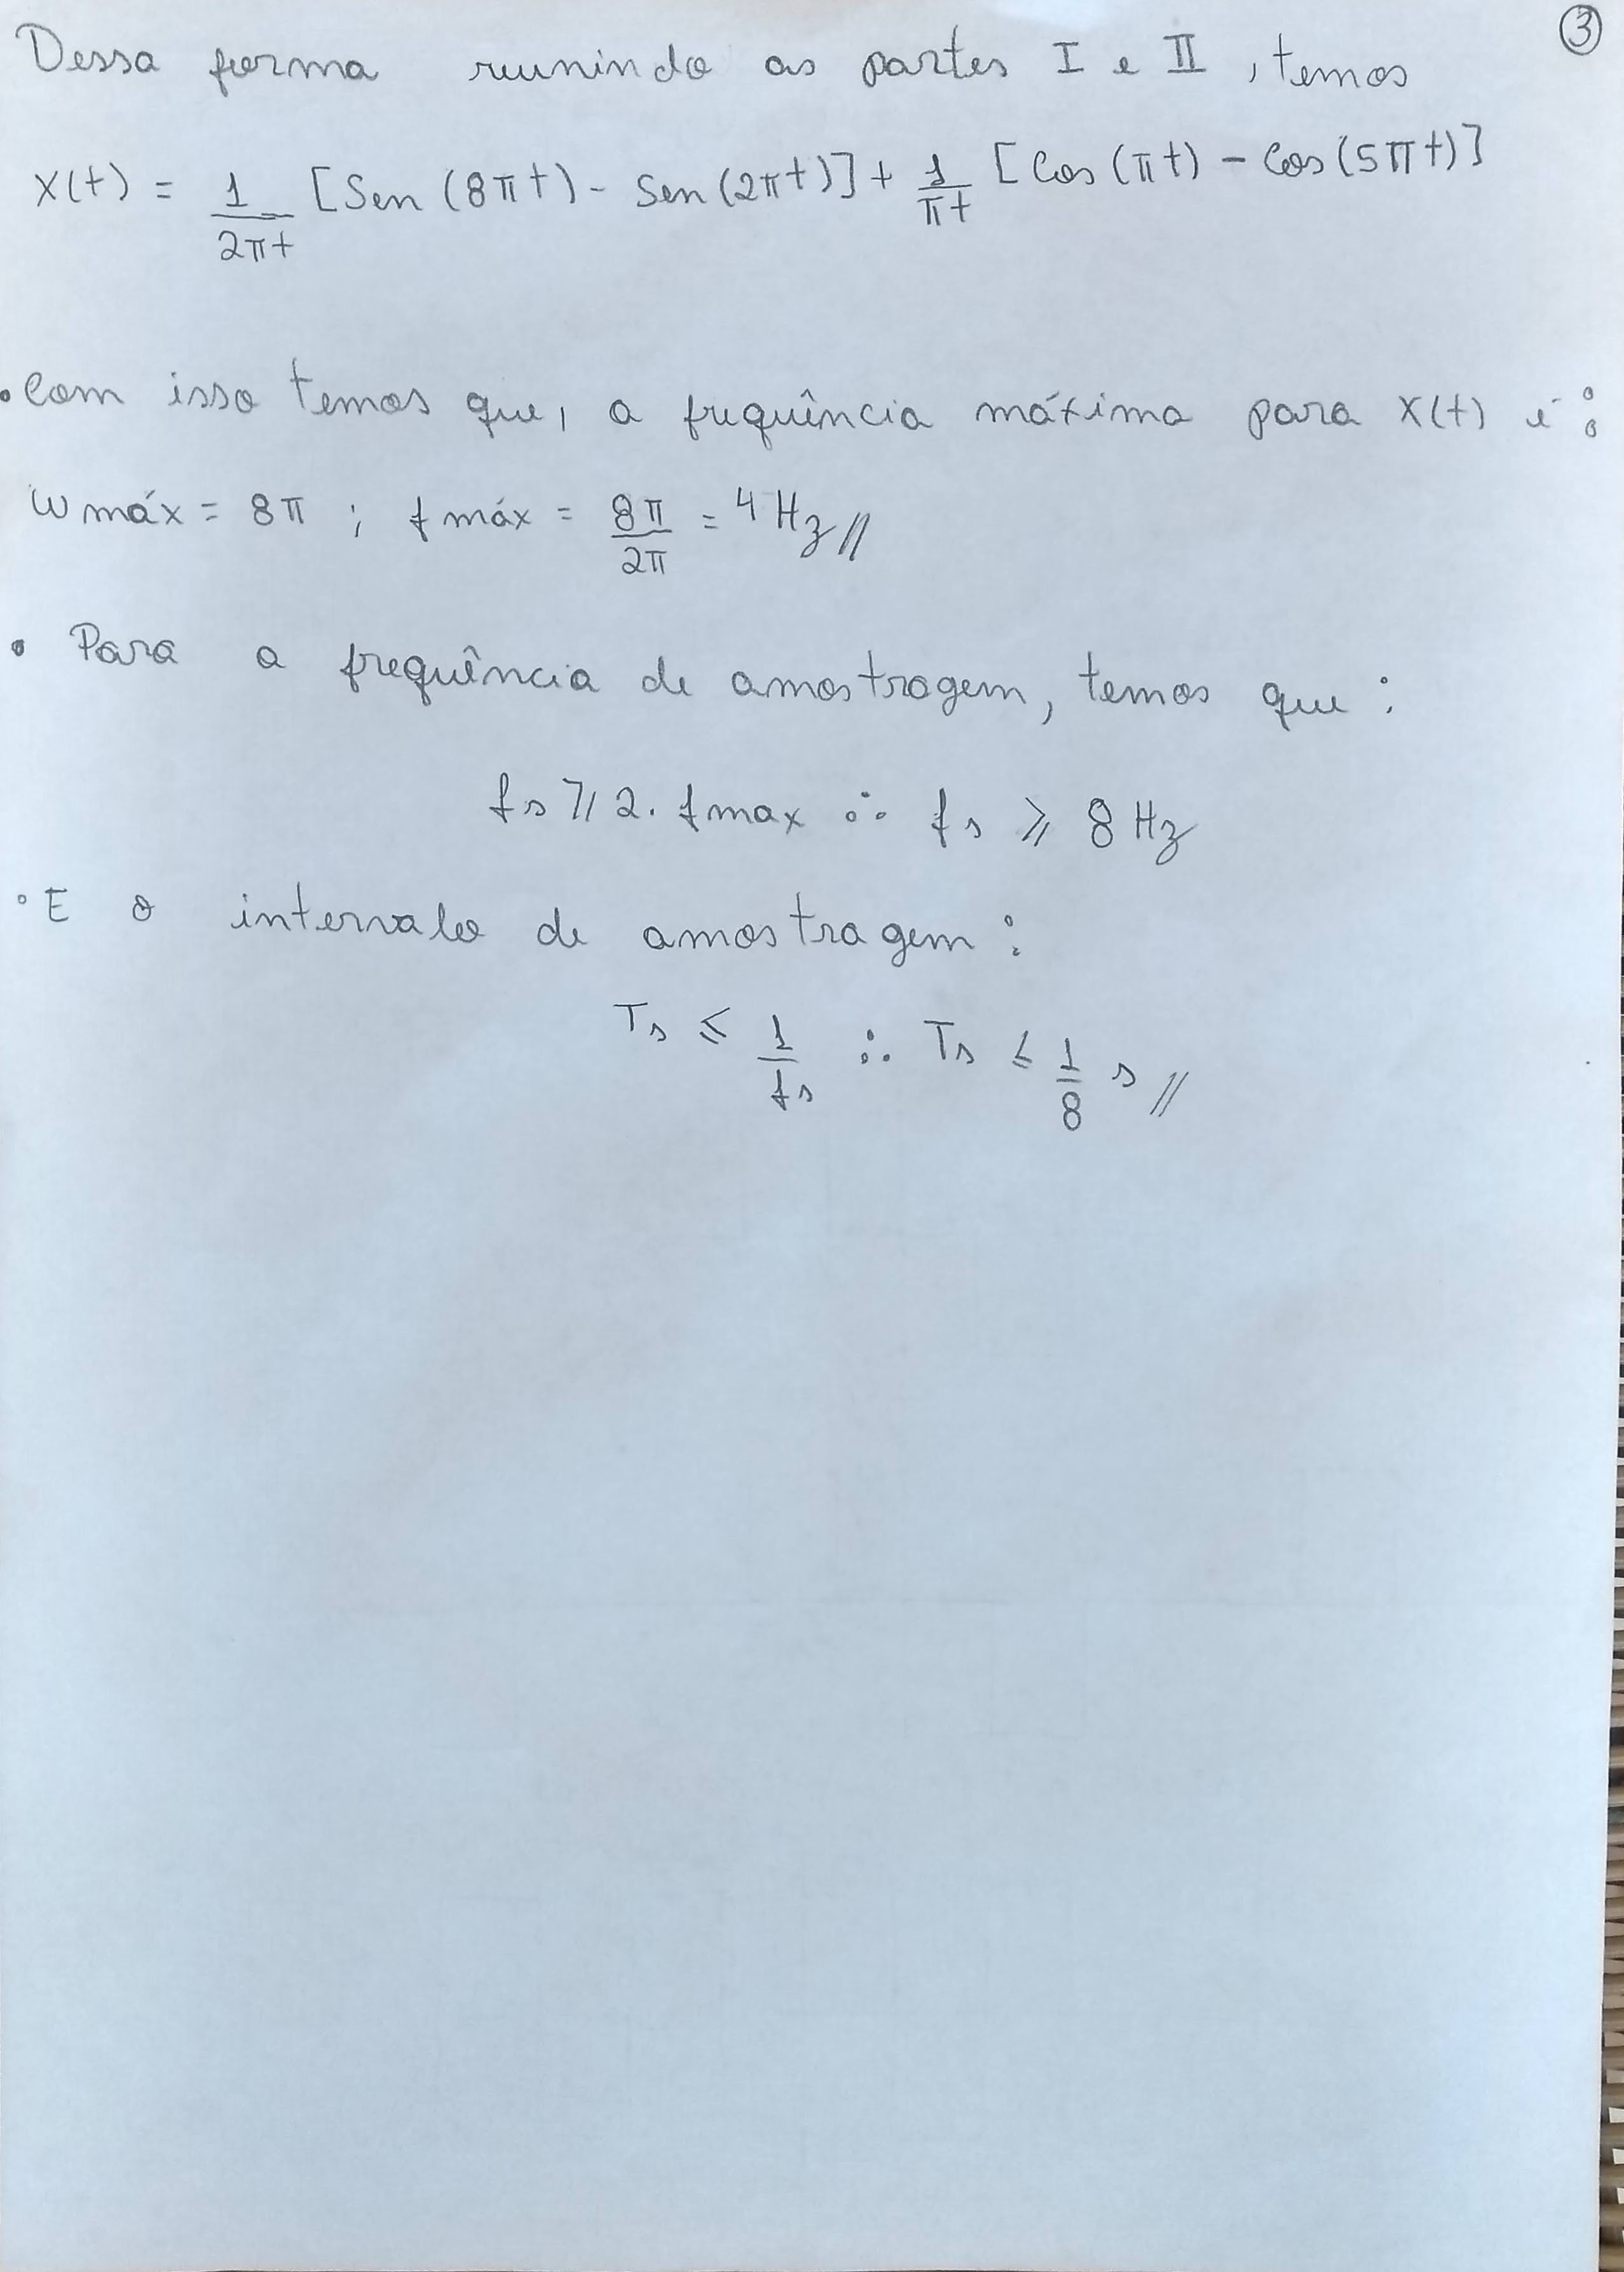 ③
Dessa forma reunindo as partes I e II, temos
X(t) = 1/2πt [Sen (8πt) - Sen (2πt)] + 1/πt [Cos (πt) - Cos (5πt)]
• Com isso temos que, a frequência máxima para X(t) é:
ω máx = 8π ; f máx = 8π/2π = 4 Hz //
• Para a frequência de amostragem, temos que:
fs ⩾ 2. f max ∴ fs ⩾ 8 Hz
• E o intervalo de amostragem:
Ts ⩽ 1/fs ∴ Ts ⩽ 1/8 s //